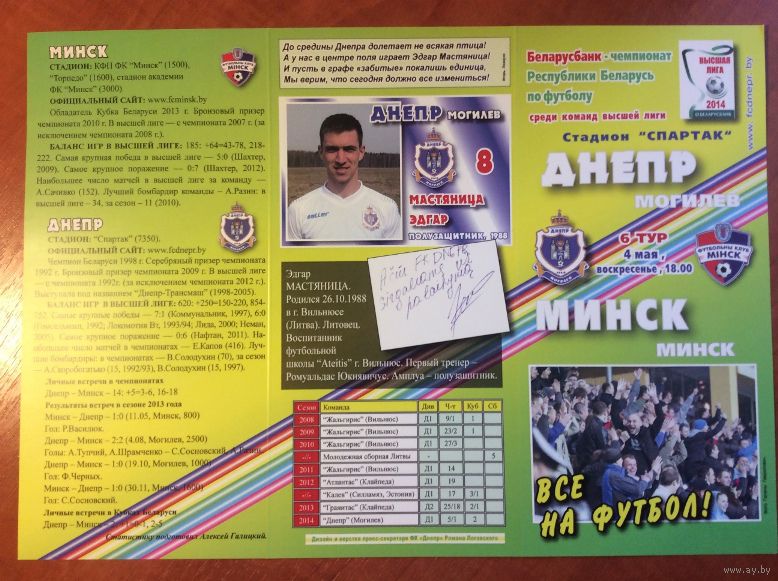 МИНСК
СТАДИОН: КФП ФК "Минск" (1500),
"Торпедо" (1600), стадион академии
ФК "Минск" (3000)
ОФИЦИАЛЬНЫЙ САЙТ: www.fcminsk.by
Обладатель Кубка Беларуси 2013 г. Бронзовый призер
чемпионата 2010 г. В высшей лиге — с чемпионата 2007 г. (за
исключением чемпионата 2008 г.).
БАЛАНС ИГР В ВЫСШЕЙ ЛИГЕ: 185: +64=43-78, 218-
222. Самая крупная победа в высшей лиге — 5:0 (Шахтер,
2009). Самое крупное поражение — 0:7 (Шахтер, 2012).
Наибольшее число матчей в высшей лиге за команду —
А.Сачивко (152). Лучший бомбардир команды – А.Разин: в
высшей лиге – 34, за сезон – 11 (2010).
ДНЕПР
СТАДИОН: "Спартак" (7350).
ОФИЦИАЛЬНЫЙ САЙТ: www.fcdnepr.by
Чемпион Беларуси 1998 г. Серебряный призер чемпионата
1992 г. Бронзовый призер чемпионата 2009 г. В высшей лиге
— с чемпионата 1992г. (за исключением чемпионата 2012 г.).
Выступала под названием "Днепр-Трансмаш" (1998-2005).
БАЛАНС ИГР В ВЫСШЕЙ ЛИГЕ: 620: +250=150-220, 854-
752. Самые крупные победы — 7:1 (Коммунальник, 1997), 6:0
1992; Локомотив Вт, 1993/94; Лида, 2000; Неман,
2005). Самое крупное поражение — 0:6 (Нафтан, 2011). На-
ибольшее число матчей в высшей лиге — Е.Капов (416). Луч-
шие бомбардиры: в чемпионатах — В.Солодухин (70), за сезон
— А.Скоробогатько (15, 1992/93), В.Солодухин (15, 1997).
Личные встречи в чемпионатах
Днепр – Минск – 14: +5=3-6, 16-18
Результаты встреч в сезоне 2013 года
Минск – Днепр – 1:0 (11.05, Минск, 800)
Гол: Р.Василюк.
Днепр – Минск – 2:2 (4.08, Могилев, 2500)
Голы: А.Тупчий, А.Шрамченко – С.Сосновский,
Днепр – Минск – 1:0 (19.10, Могилев, 1000)
Гол: Ф.Черных.
Минск – Днепр – 1:0 (30.11, Минск, 1600)
Гол: С.Сосновский.
Личные встречи в Кубках Беларуси
Днепр – Минск – 2: 2-5
Статистику подготовил Алексей Галицкий.
До средины Днепра долетает не всякая птица!
А у нас в центре поля играет Эдгар Мастяница!
И пусть в графе «забитые» покалишь единица,
Мы верим, что сегодня должно все измениться!
ДНЕПР МОГИЛЕВ
8
МАСТЯНИЦА
ЭДГАР
ПОЛУЗАЩИТНИК, 1988
Эдгар
МАСТЯНИЦА.
Родился 26.10.1988
в г. Вильнюсе
(Литва). Литовец.
Воспитанник
футбольной
школы "Ateitis" г. Вильнюс. Первый тренер –
Ромуальдас Юкнявичус. Амплуа – полузащитник.
Сезон Команда Див Ч-т Куб Сб
2008 "Жальгирис" (Вильнюс) Д1 9/1 1
2009 "Жальгирис" (Вильнюс) Д1 23/2 1
2010 "Жальгирис" (Вильнюс) Д1 27/3
-//- Молодежная сборная Литвы - 5
2011 "Жальгирис" (Вильнюс) Д1 14
2012 "Атлантас" (Клайпеда) Д1 19
-//- "Калев" (Силламяэ, Эстония) Д1 17 3/1
2013 "Гранитас" (Клайпеда) Д2 25/18 2/1
2014 "Днепр" (Могилев) Д1 5/1 2
Дизайн и верстка пресс-секретаря ФК «Днепр» Романа Логовского
Беларусбанк - чемпионат
Республики Беларусь
по футболу
среди команд высшей лиги
ВЫСШАЯ
ЛИГА
2014
БЕЛАРУСБАНК
www.fcdnepr.by
Стадион "СПАРТАК"
ДНЕПР
МОГИЛЕВ
6 ТУР
4 мая,
воскресенье, 18.00
ФУТБОЛЬНЫ КЛУБ
МІНСК
МИНСК
МИНСК
ВСЕ
НА ФУТБОЛ!
www.ay.by